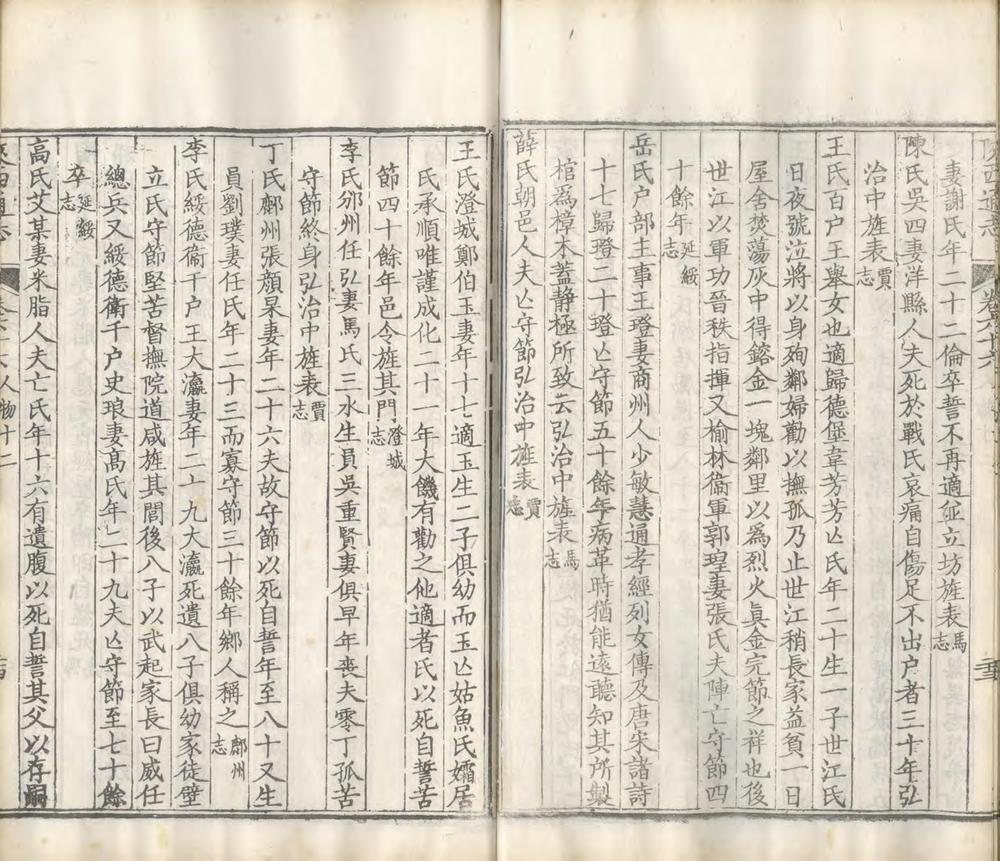 陝西通志　卷六十六
妻謝氏年二十二倫卒誓不再適征立坊旌表馬志
陳氏吳四妻洋縣人夫死於戰氏哀痛自傷足不出户者三十年弘
治中旌表賈志
王氏百户王舉女也適歸德堡韋芳芳亾氏年二十生一子世江氏
日夜號泣將以身殉鄰婦勸以撫孤乃止世江稍長家益貧一日
屋舍焚蕩灰中得鎔金一塊鄰里以爲烈火真金完節之祥也後
世江以軍功晉秩指揮又榆林衞軍郭瑝妻張氏夫陣亡守節四
十餘年延綏志
岳氏户部主事王璒妻商州人少敏慧通孝經列女傳及唐宋諸詩
十七歸璒二十璒亾守節五十餘年病革時猶能遠聽知其所製
棺爲樟木蓋静極所致云弘治中旌表馬志
薛氏朝邑人夫亾守節弘治中旌表賈志
王氏澄城鄭伯玉妻年十七適玉生二子俱幼而玉亾姑魚氏孀居
氏承順唯謹成化二十一年大饑有勸之他適者氏以死自誓苦
節四十餘年邑令旌其門澄城志
李氏邠州任弘妻馬氏三水生員吳重賢妻俱早年喪夫零丁孤苦
守節終身弘治中旌表賈志
丁氏鄜州張顔杲妻年二十六夫故守節以死自誓年至八十又生
員劉璞妻任氏年二十三而寡守節三十餘年鄉人稱之鄜州志
李氏綏德衞千户王大瀛妻年二十九大瀛死遺八子俱幼家徒壁
立氏守節堅苦督撫院道咸旌其閭後八子以武起家長曰威任
總兵又綏德衞千户史琅妻高氏年二十九夫亾守節至七十餘
卒延綏志
高氏艾某妻米脂人夫亡氏年十六有遺腹以死自誓其父以存嗣
人物十二